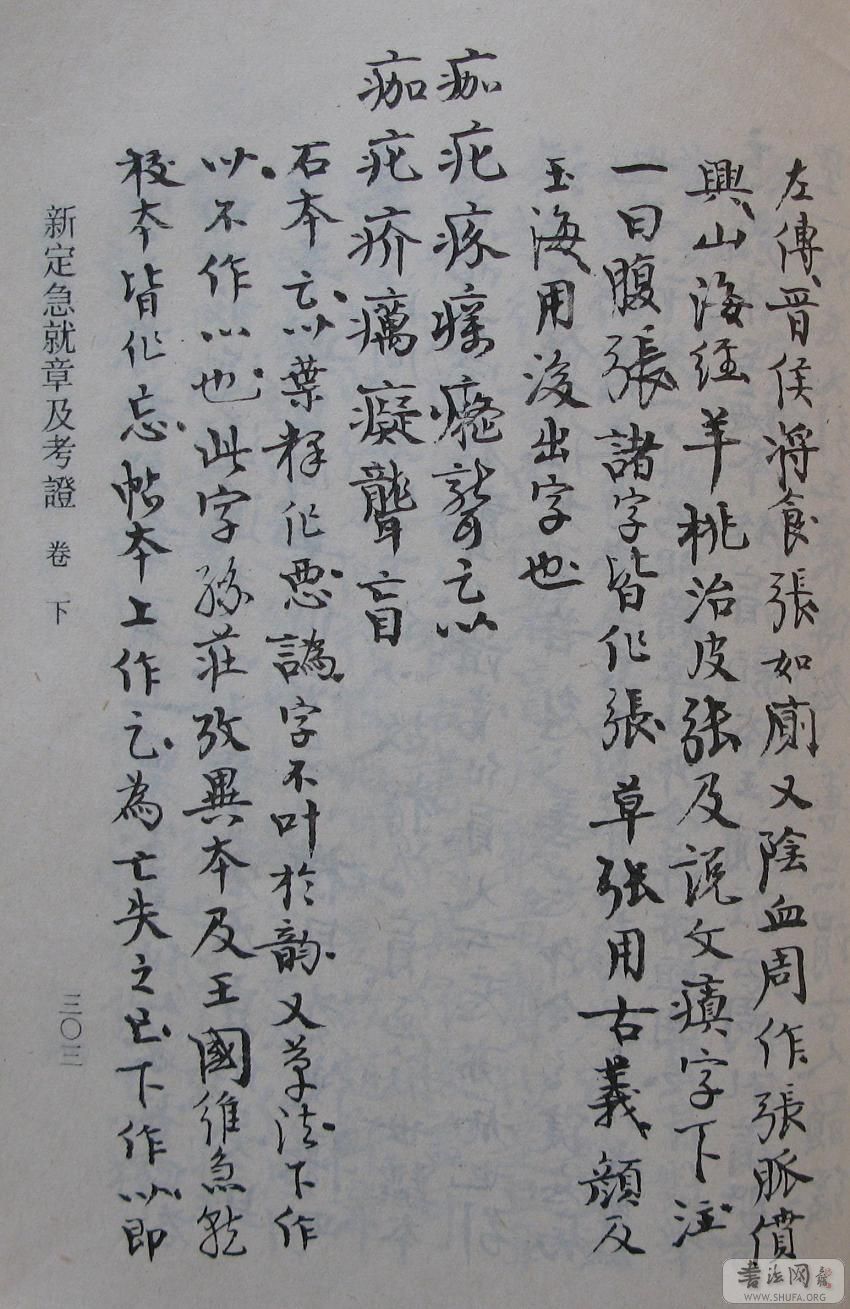 左傳晉侯將食張如廁又陰血周作張脈僨
興山海經羊桃治皮張及說文瘨字下注
一曰腹張諸字皆作張草張用古義顏及
玉海用後出字也
痂疕疥癘癡聾
痂疕疥癘癡聾盲
石本忘以葉釋作惡譌字不叶於韵又草法下作
以不作心也此字孫莊攷異本及王國維急就
校本皆作忘帖本上作亡為亡失之亡下作以即
新定急就章及考證 卷 下
三〇三
書法网
WWW.SHUFA.ORG